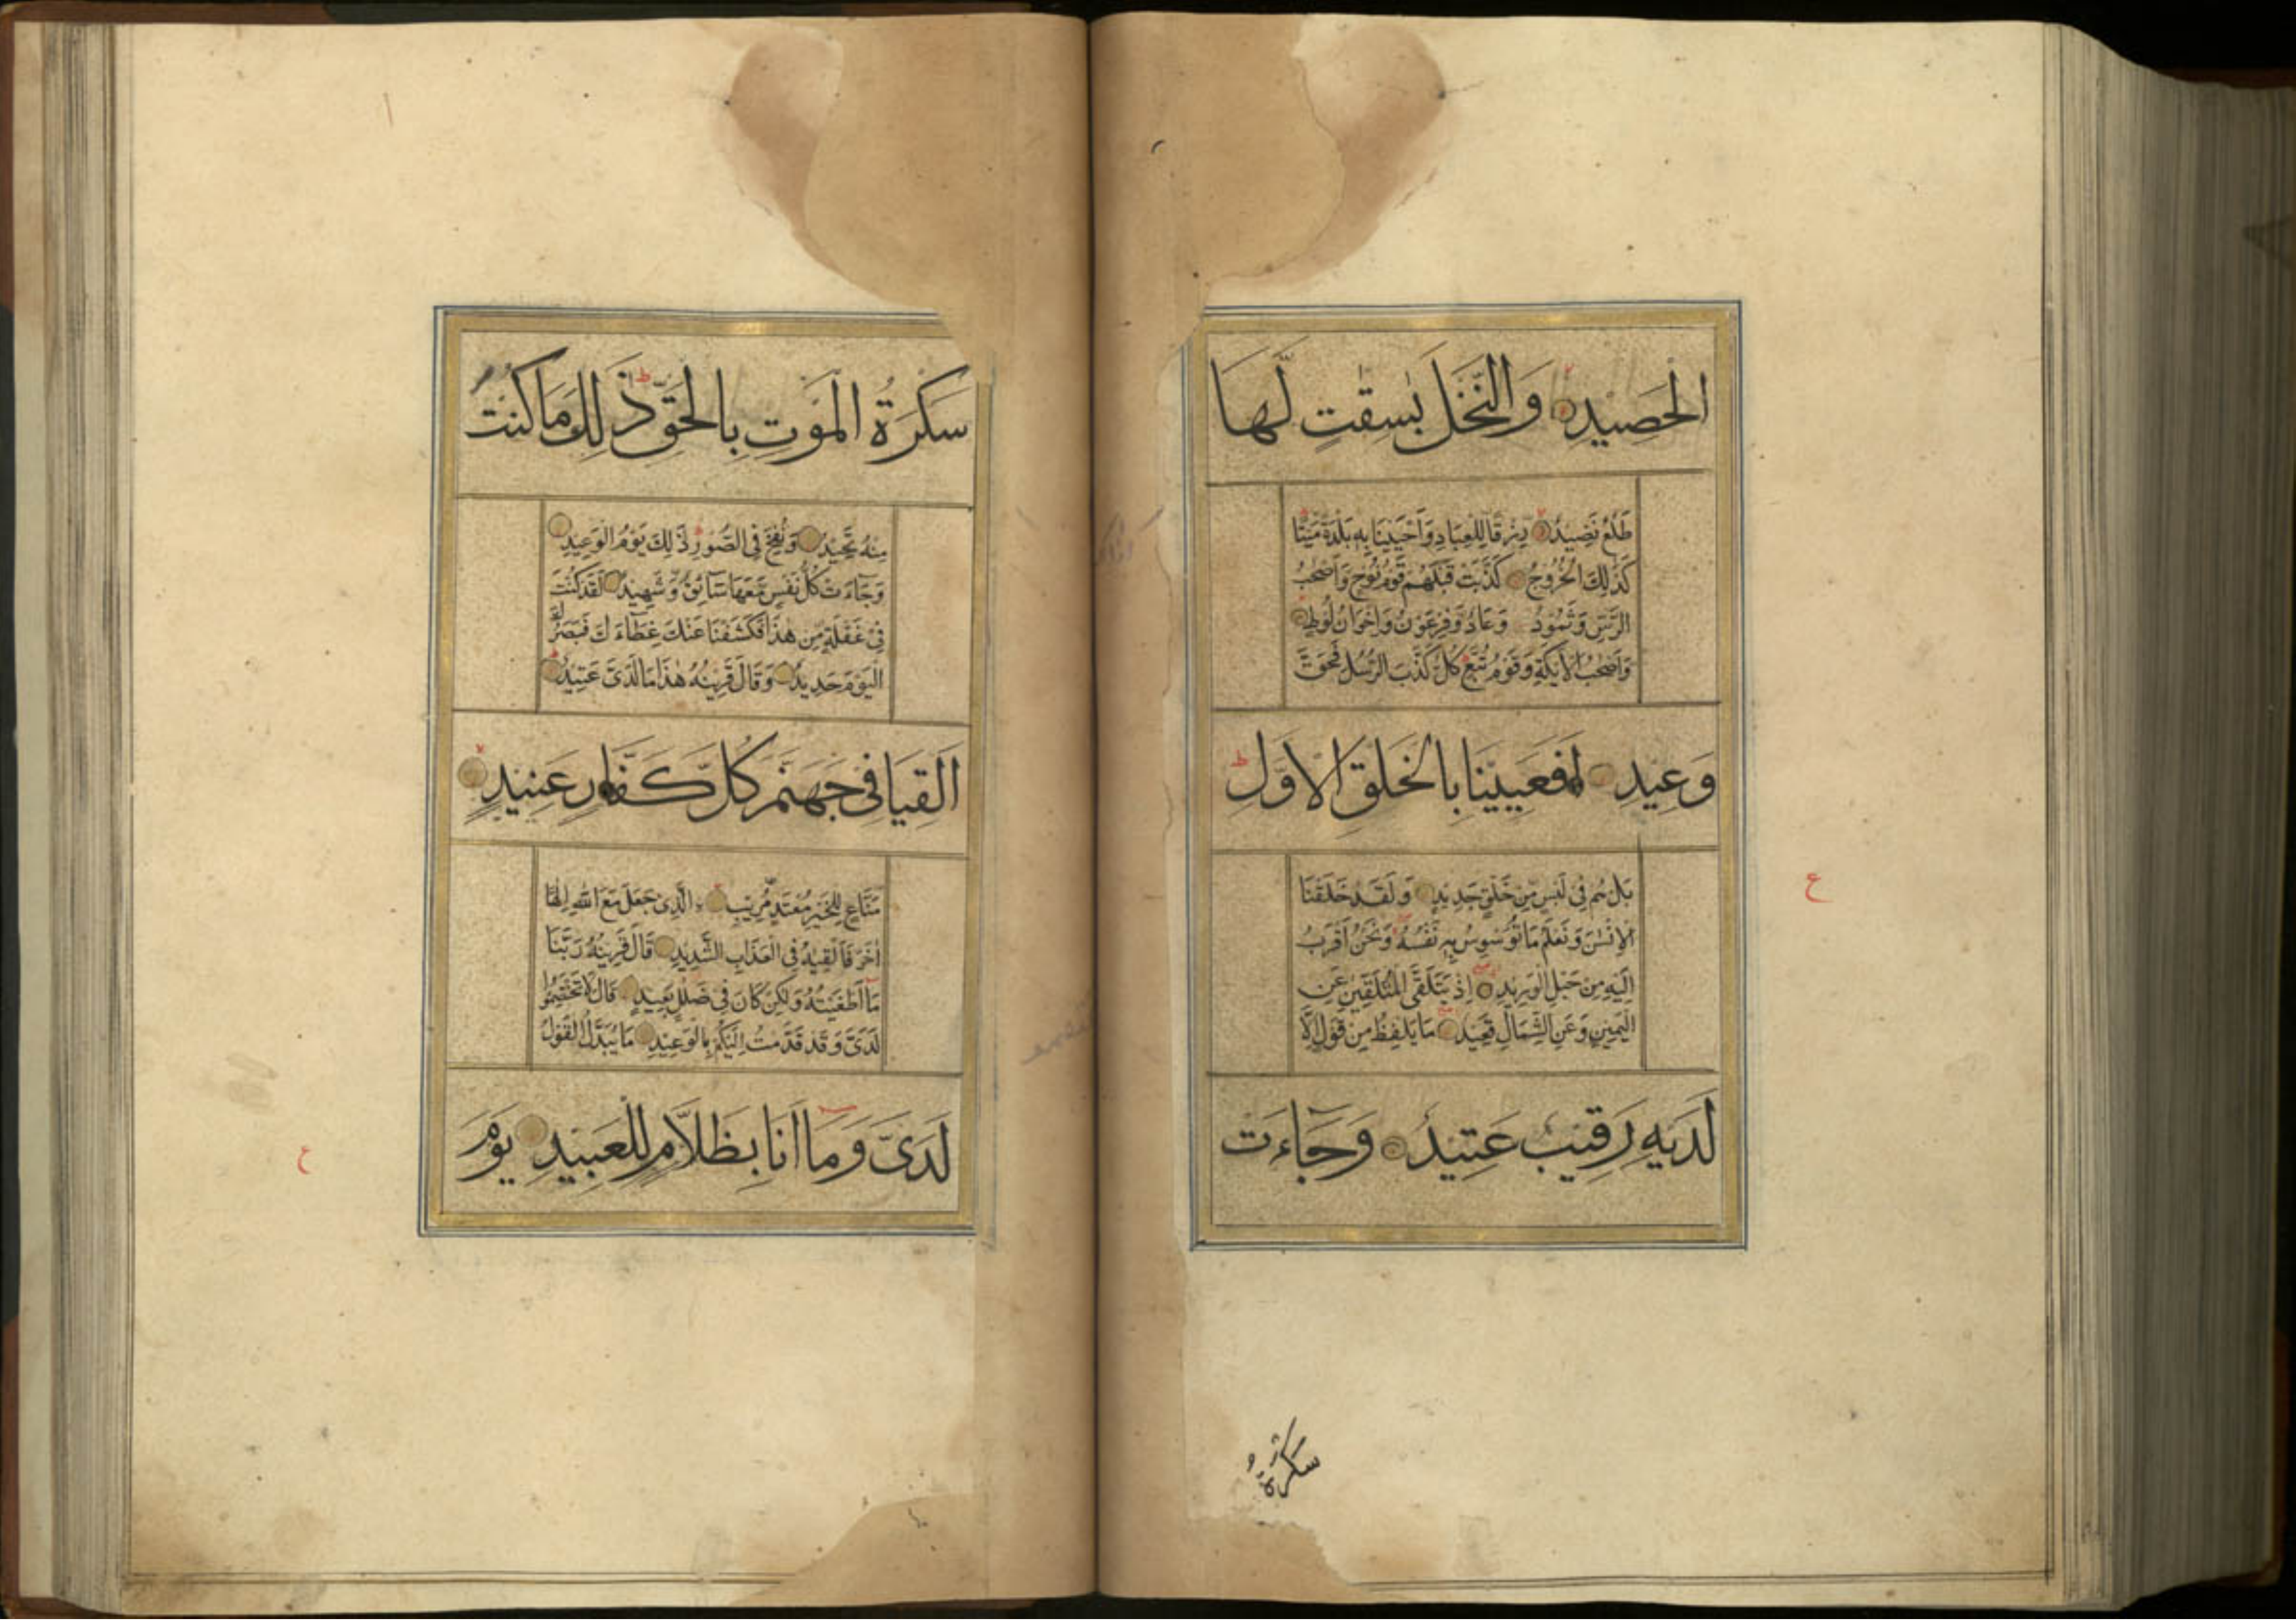 الْحَصِيْدِ وَالنَّخْلَ بٰسِقٰتٍ لَّهَا
طَلْعٌ نَّضِيْدٌ رِّزْقًا لِّلْعِبَادِ وَاَحْيَيْنَا بِهٖ بَلْدَةً مَّيْتًا
كَذٰلِكَ الْخُرُوْجُ كَذَّبَتْ قَبْلَهُمْ قَوْمُ نُوْحٍ وَّاَصْحٰبُ
الرَّسِّ وَثَمُوْدُ وَعَادٌ وَّفِرْعَوْنُ وَاِخْوَانُ لُوْطٍ
وَّاَصْحٰبُ الْاَيْكَةِ وَقَوْمُ تُبَّعٍ كُلٌّ كَذَّبَ الرُّسُلَ فَحَقَّ
وَعِيْدِ اَفَعَيِيْنَا بِالْخَلْقِ الْاَوَّلِ
بَلْ هُمْ فِيْ لَبْسٍ مِّنْ خَلْقٍ جَدِيْدٍ وَلَقَدْ خَلَقْنَا
الْاِنْسٰنَ وَنَعْلَمُ مَا تُوَسْوِسُ بِهٖ نَفْسُهٗ وَنَحْنُ اَقْرَبُ
اِلَيْهِ مِنْ حَبْلِ الْوَرِيْدِ اِذْ يَتَلَقَّى الْمُتَلَقِّيٰنِ عَنِ
الْيَمِيْنِ وَعَنِ الشِّمَالِ قَعِيْدٌ مَا يَلْفِظُ مِنْ قَوْلٍ اِلَّا
لَدَيْهِ رَقِيْبٌ عَتِيْدٌ وَجَاءَتْ
سَكْرَةُ
ع
سَكْرَةُ الْمَوْتِ بِالْحَقِّ ذٰلِكَ مَا كُنْتَ
مِنْهُ تَحِيْدُ وَنُفِخَ فِي الصُّوْرِ ذٰلِكَ يَوْمُ الْوَعِيْدِ
وَجَآءَتْ كُلُّ نَفْسٍ مَّعَهَا سَآئِقٌ وَّشَهِيْدٌ لَقَدْ كُنْتَ
فِيْ غَفْلَةٍ مِّنْ هٰذَا فَكَشَفْنَا عَنْكَ غِطَآءَكَ فَبَصَرُكَ
الْيَوْمَ حَدِيْدٌ وَقَالَ قَرِيْنُهٗ هٰذَا مَا لَدَيَّ عَتِيْدٌ
اَلْقِيَا فِيْ جَهَنَّمَ كُلَّ كَفَّارٍ عَنِيْدٍ
مَّنَّاعٍ لِّلْخَيْرِ مُعْتَدٍ مُّرِيْبٍ الَّذِيْ جَعَلَ مَعَ اللّٰهِ اِلٰهًا
اٰخَرَ فَاَلْقِيٰهُ فِي الْعَذَابِ الشَّدِيْدِ قَالَ قَرِيْنُهٗ رَبَّنَا
مَآ اَطْغَيْتُهٗ وَلٰكِنْ كَانَ فِيْ ضَلٰلٍ بَعِيْدٍ قَالَ لَا تَخْتَصِمُوْا
لَدَيَّ وَقَدْ قَدَّمْتُ اِلَيْكُمْ بِالْوَعِيْدِ مَا يُبَدَّلُ الْقَوْلُ
لَدَيَّ وَمَا اَنَا بِظَلَّامٍ لِّلْعَبِيْدِ يَوْمَ
ع